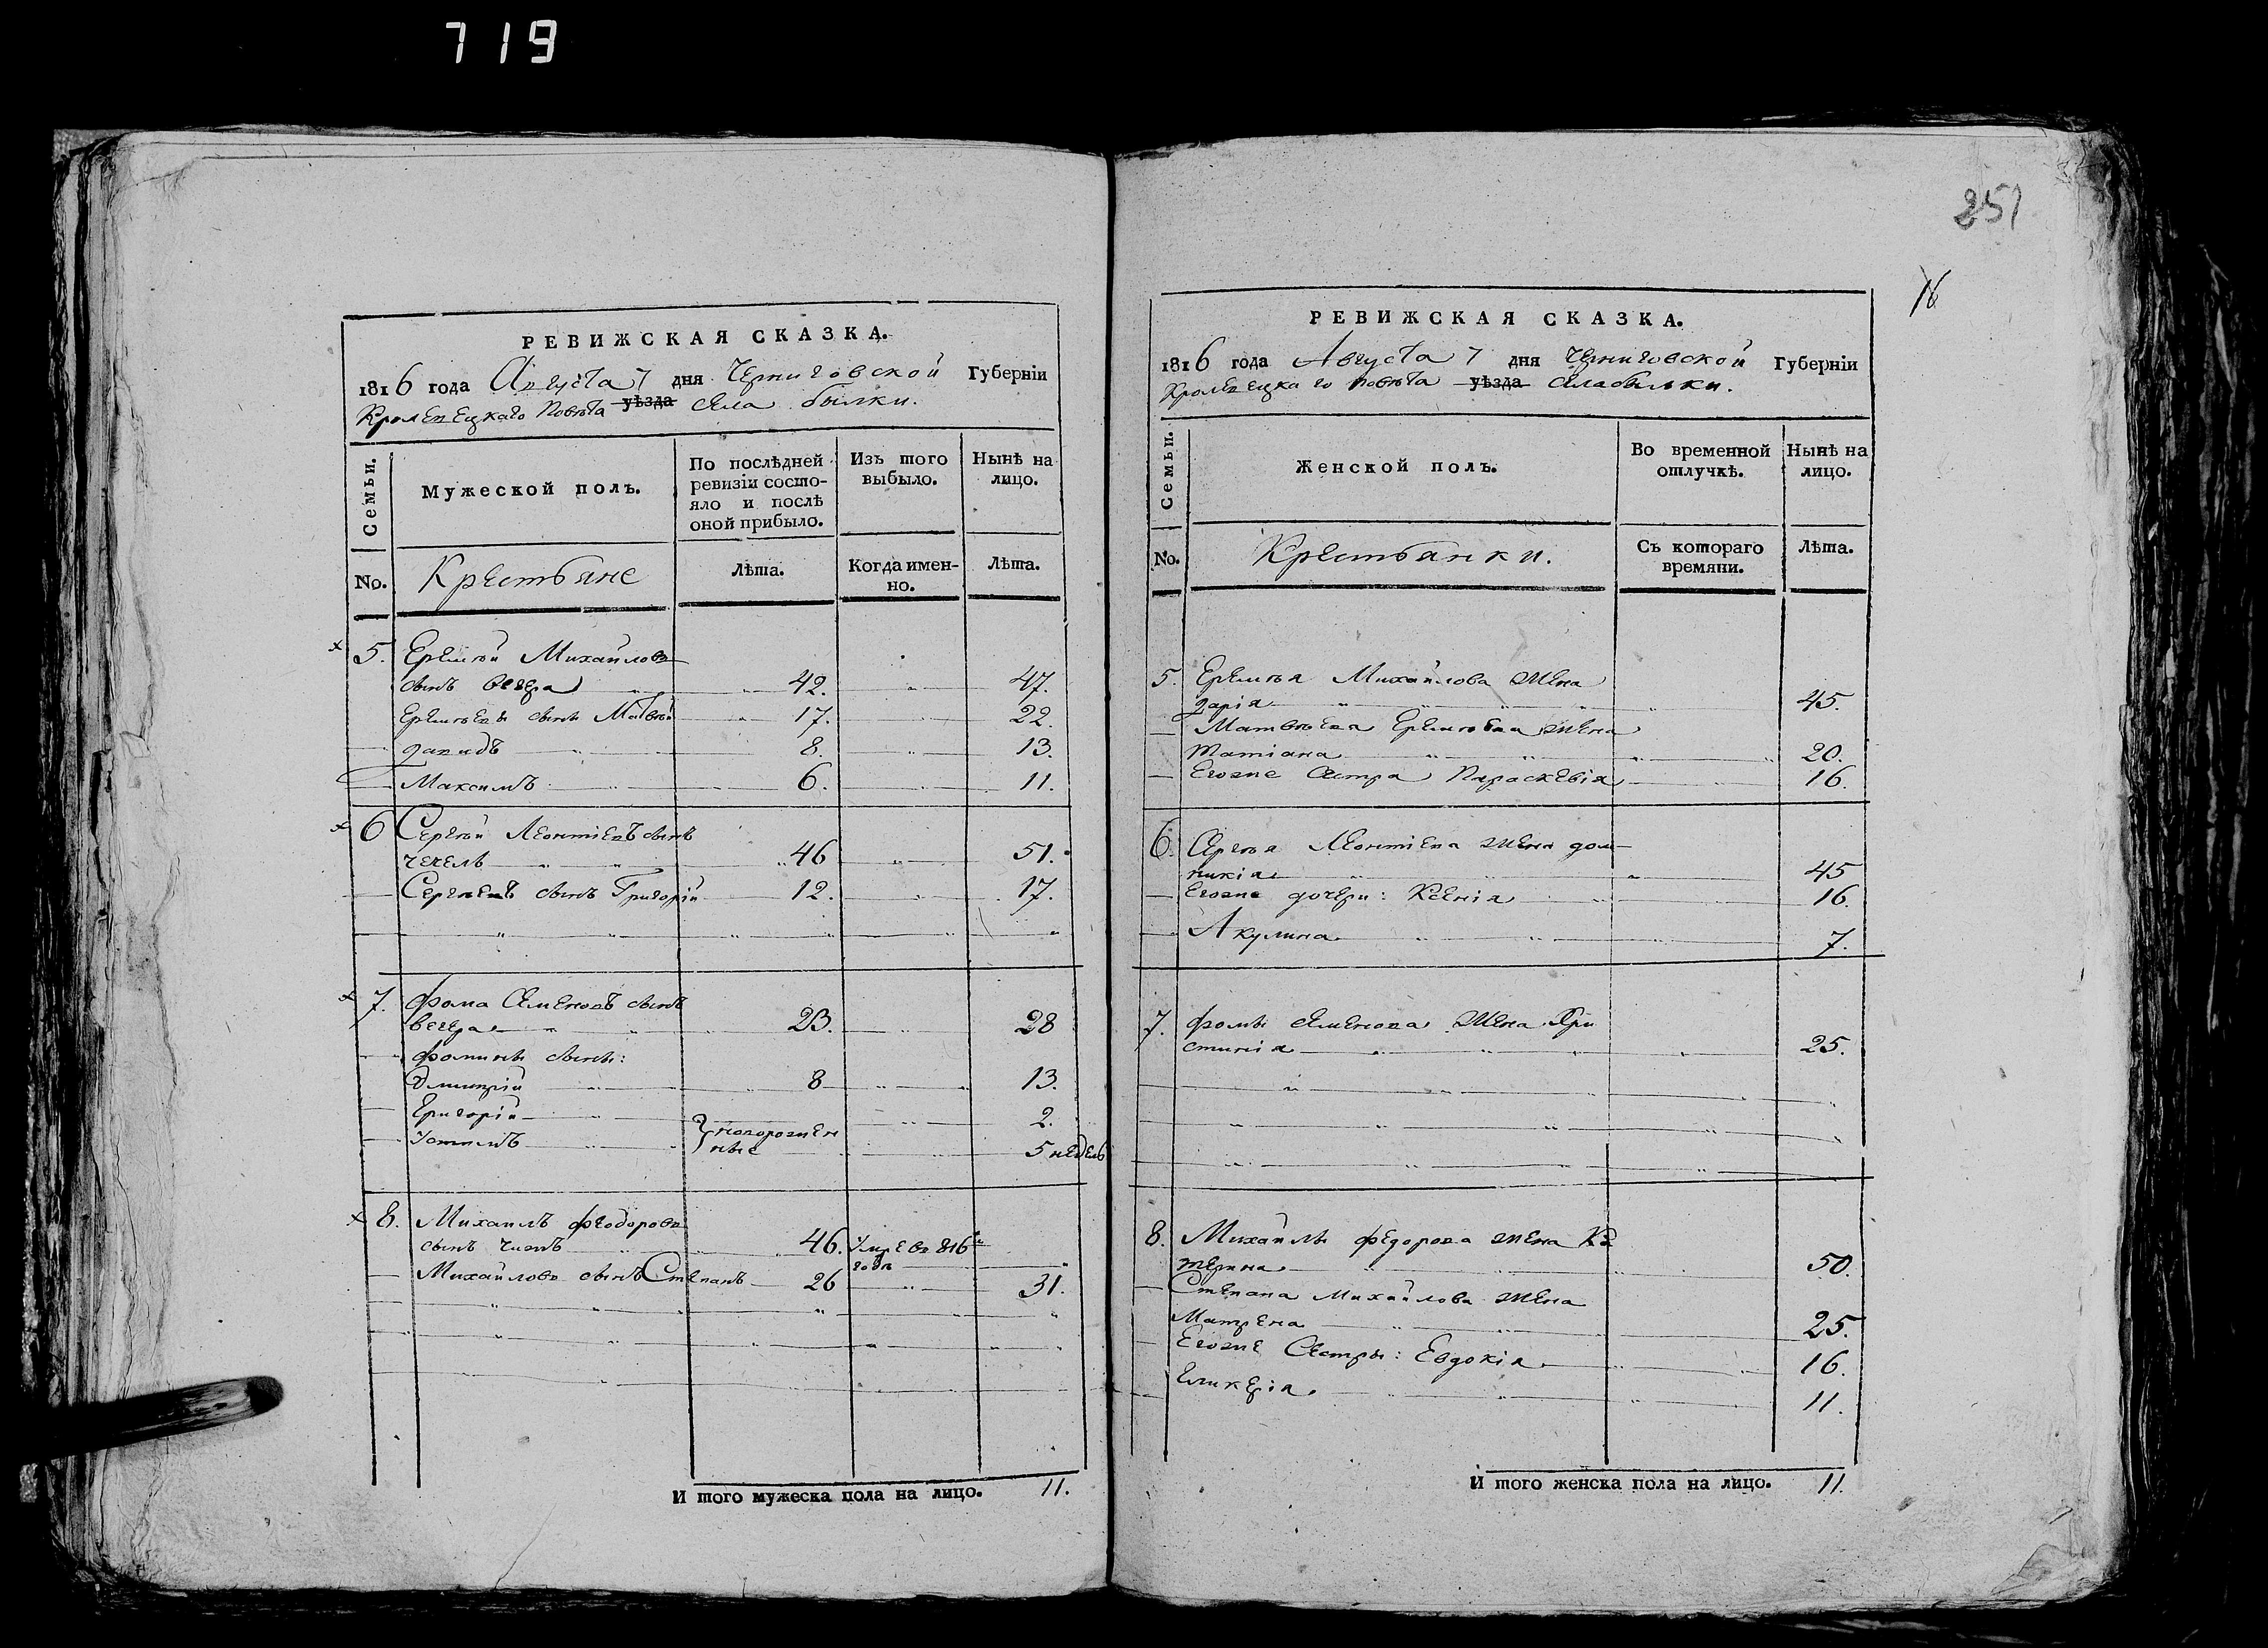 719
251
16
РЕВИЖСКАЯ СКАЗКА.
1816 года Августа 7 дня Черниговской Губерніи
Кролевецкаго Повѣта уѣзда Села Былки.
Семьи.
Мужеской полъ.
По послѣдней ревизіи состо-
яло и послѣ
оной прибыло.
Изъ того выбыло.
Нынѣ на лицо.
No.
Крестьяне
Лѣта.
Когда имен-
но.
Лѣта.
5. Еремѣй Михайловъ
сынъ Вечера 42. 47.
Еремѣевы сыны Матвѣй 17. 22.
давидъ 8. 13.
Максимъ 6. 11.
6 Сергѣй Леонтіевъ сынъ
чехелъ 46 51.
Сергѣевъ сынъ Григорій 12. 17.
7. фома Семеновъ сынъ
вечера 23. 28
фомины сыны:
Дмитрій 8 13.
Григорій 2.
Устимъ новорожден
ные 5 недель
8. Михаилъ феодоровъ
сынъ 46. Умре въ 816м
годѣ
Михайловъ сынъ Степанъ 26 31.
И того мужеска пола на лицо. 11.
РЕВИЖСКАЯ СКАЗКА.
1816 года Августа 7 дня Черниговской Губерніи
Кролевецкаго Повѣта уѣзда Села Былки.
Семьи.
Женской полъ.
Во временной
отлучкѣ.
Нынѣ на
лицо.
No.
Крестьянки.
Съ котораго
времяни.
Лѣта.
5. Еремѣя Михайлова Жена
дарія 45.
Матвѣева Еремѣева Жена
татіана 20.
Егоже Сестра Параскевія 16.
6. Сергѣя Леонтіева жена дом-
никія 45
Егоже дочери: Ксенія 16.
Акулина 7.
7. фомы Семенова Жена Хри
стинія 25.
8. Михайлы федорова жена Ка
терина 50.
Степана Михайлова жена
Матрена 25.
Егоже Сестры: Евдокія 16.
Гликерія 11.
И того женска пола на лицо. 11.